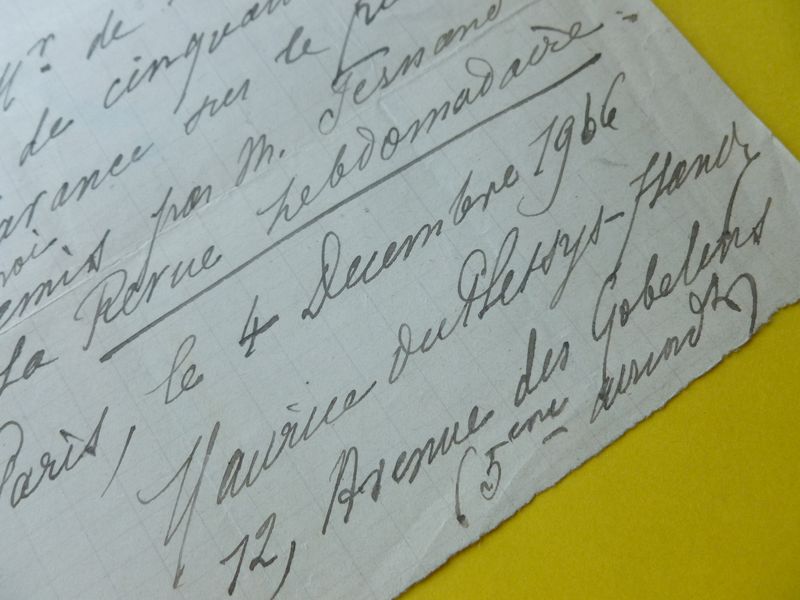 Mr. de
de cinquan
avance sur le pr
moi
remis par M. Fernand
La Revue hebdomadaire.
Paris, le 4 Decembre 1906
Maurice du Plessys-Flandr
12, Avenue des Gobelins
(5me arrondt)